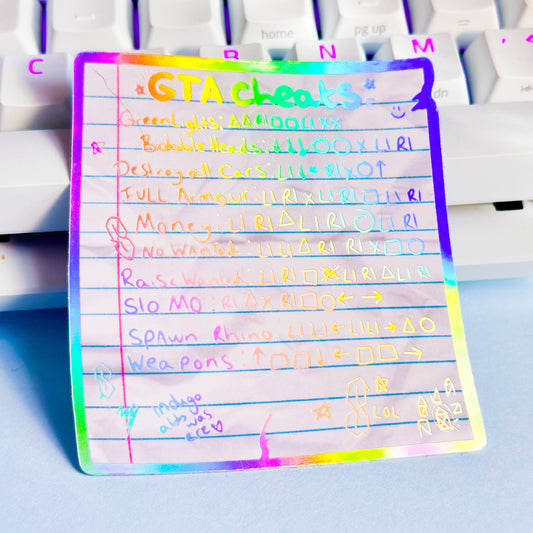 home
pg up
C
B
N
M
dn
GTA cheats:
Green Lights: △ △ R1 □ □ L1 X X
Bobble Heads: ↓ L1 ↓ ○ ○ X L1 R1
Destroy all Cars: L1 L1 ← R1 X ○ ↑
FULL Armour: L1 R1 X L1 R1 □ L1 R1
Money: L1 R1 △ L1 R1 ○ L1 R1
NO WANted: L1 L1 △ R1 R1 X □ ○
Raise Wanted: L1 R1 □ X L1 R1 △ L1 R1
Slo MO: R1 △ X R1 □ ○ ← →
SPAwn Rhino: L1 L1 ← L1 L1 → △ ○
Weapons: ↑ □ □ ↓ ← □ □ →
indigo
alts was
ere ♡
LOL
N